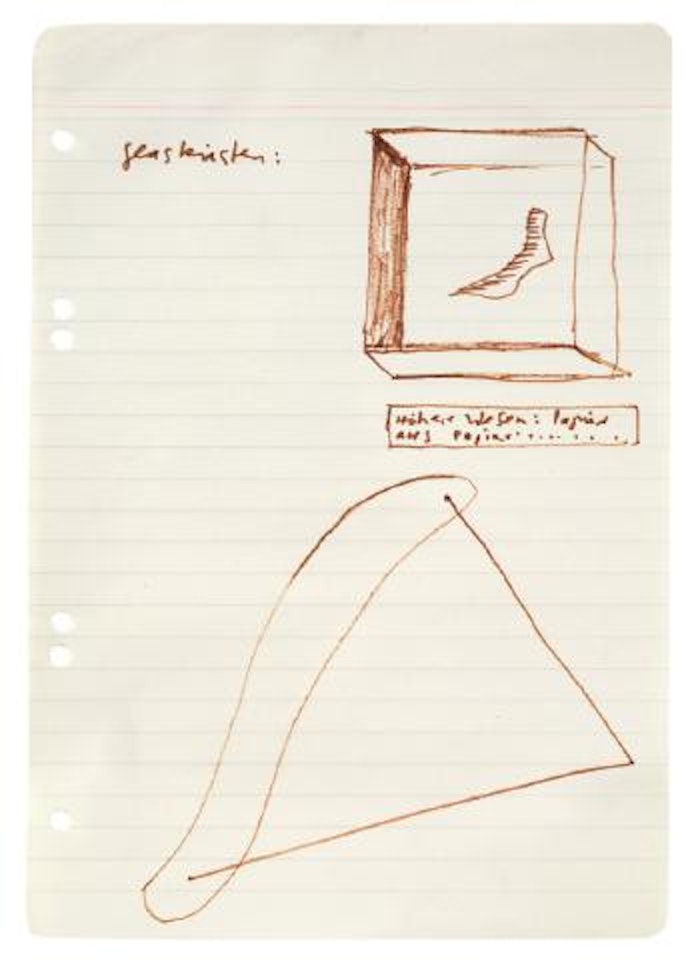 Glaskasten:
Höhere Wesen: Papier
aus Papier.........